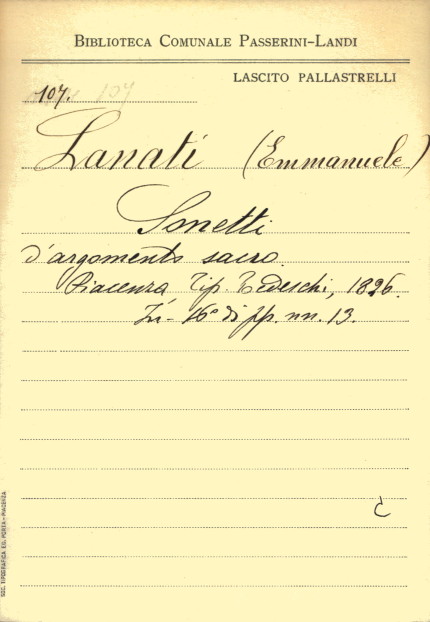 BIBLIOTECA COMUNALE PASSERINI-LANDI
LASCITO PALLASTRELLI
107. 107
Lanati (Emmanuele)
Sonetti
d'argomento sacro.
Piacenza Tip. Tedeschi, 1826.
In-16° di pp. nn. 13.
C
SOC. TIPOGRAFICA ED. PORTA - PIACENZA